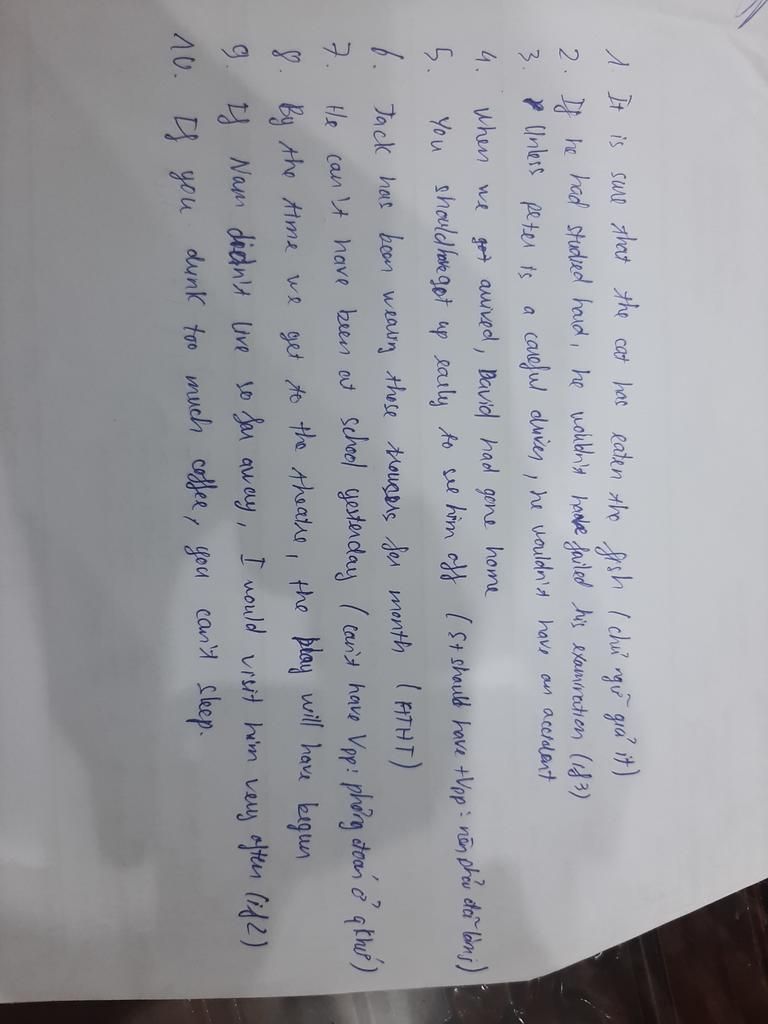 1. It is sure that the cat has eaten the fish (chủ ngữ giả it)
2. If he had studied hard, he wouldn't have failed his examination (if 3)
3. Unless peter is a careful driver, he wouldn't have an accident
4. When we arrived, David had gone home
5. You should have got up early to see him off (S + should have + Vpp: nên phải đã làm)
6. Jack has been wearing those trousers for month (HTHT)
7. He can't have been at school yesterday (can't have Vpp: phỏng đoán ở qkhứ)
8. By the time we get to the theatre, the play will have begun
9. If Nam didn't live so far away, I would visit him very often (if 2)
10. If you dunk too much coffee, you can't sleep.